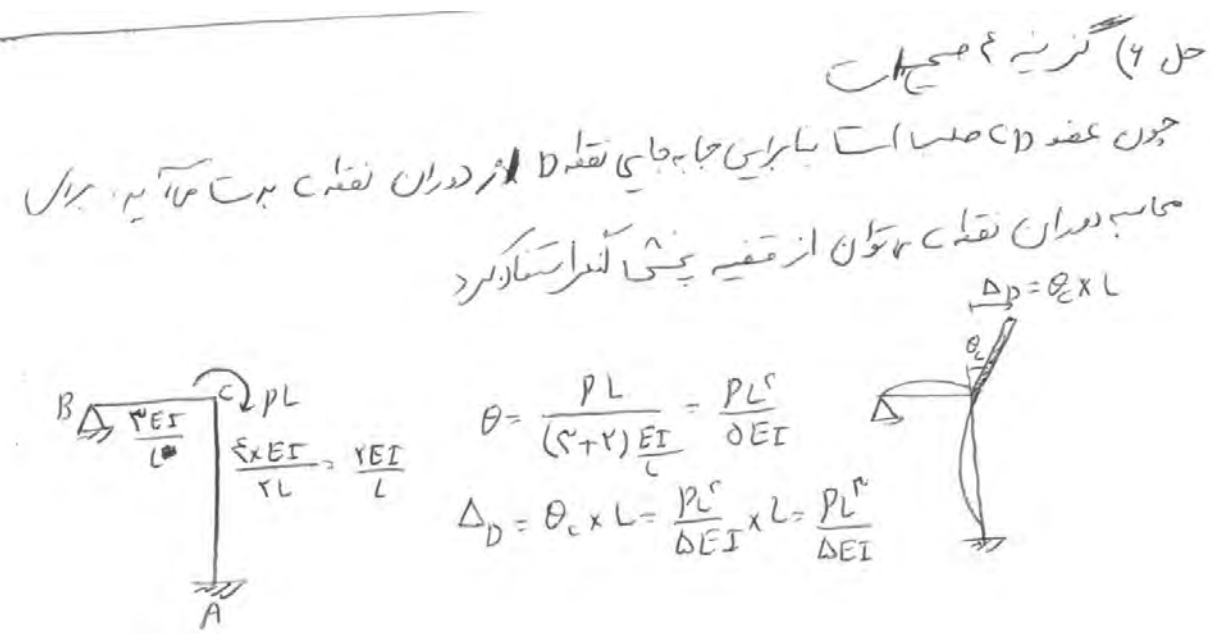 حل ۶) گزینه ۴ صحیح است
چون عضو CD صلب است بنابراین جابه‌جایی نقطه D از دوران نقطه C بدست می‌آید. برای
محاسبه دوران نقطه C می‌توان از قضیه پخشی لنگر استفاده کرد
Δ_D = θ_c × L
θ_c
B
C
PL
۳EI / L
۴×EI / ۲L = ۲EI / L
A
θ = PL / (۳+۲) EI/L = PL² / ۵EI
Δ_D = θ_c × L = PL² / ۵EI × L = PL³ / ۵EI